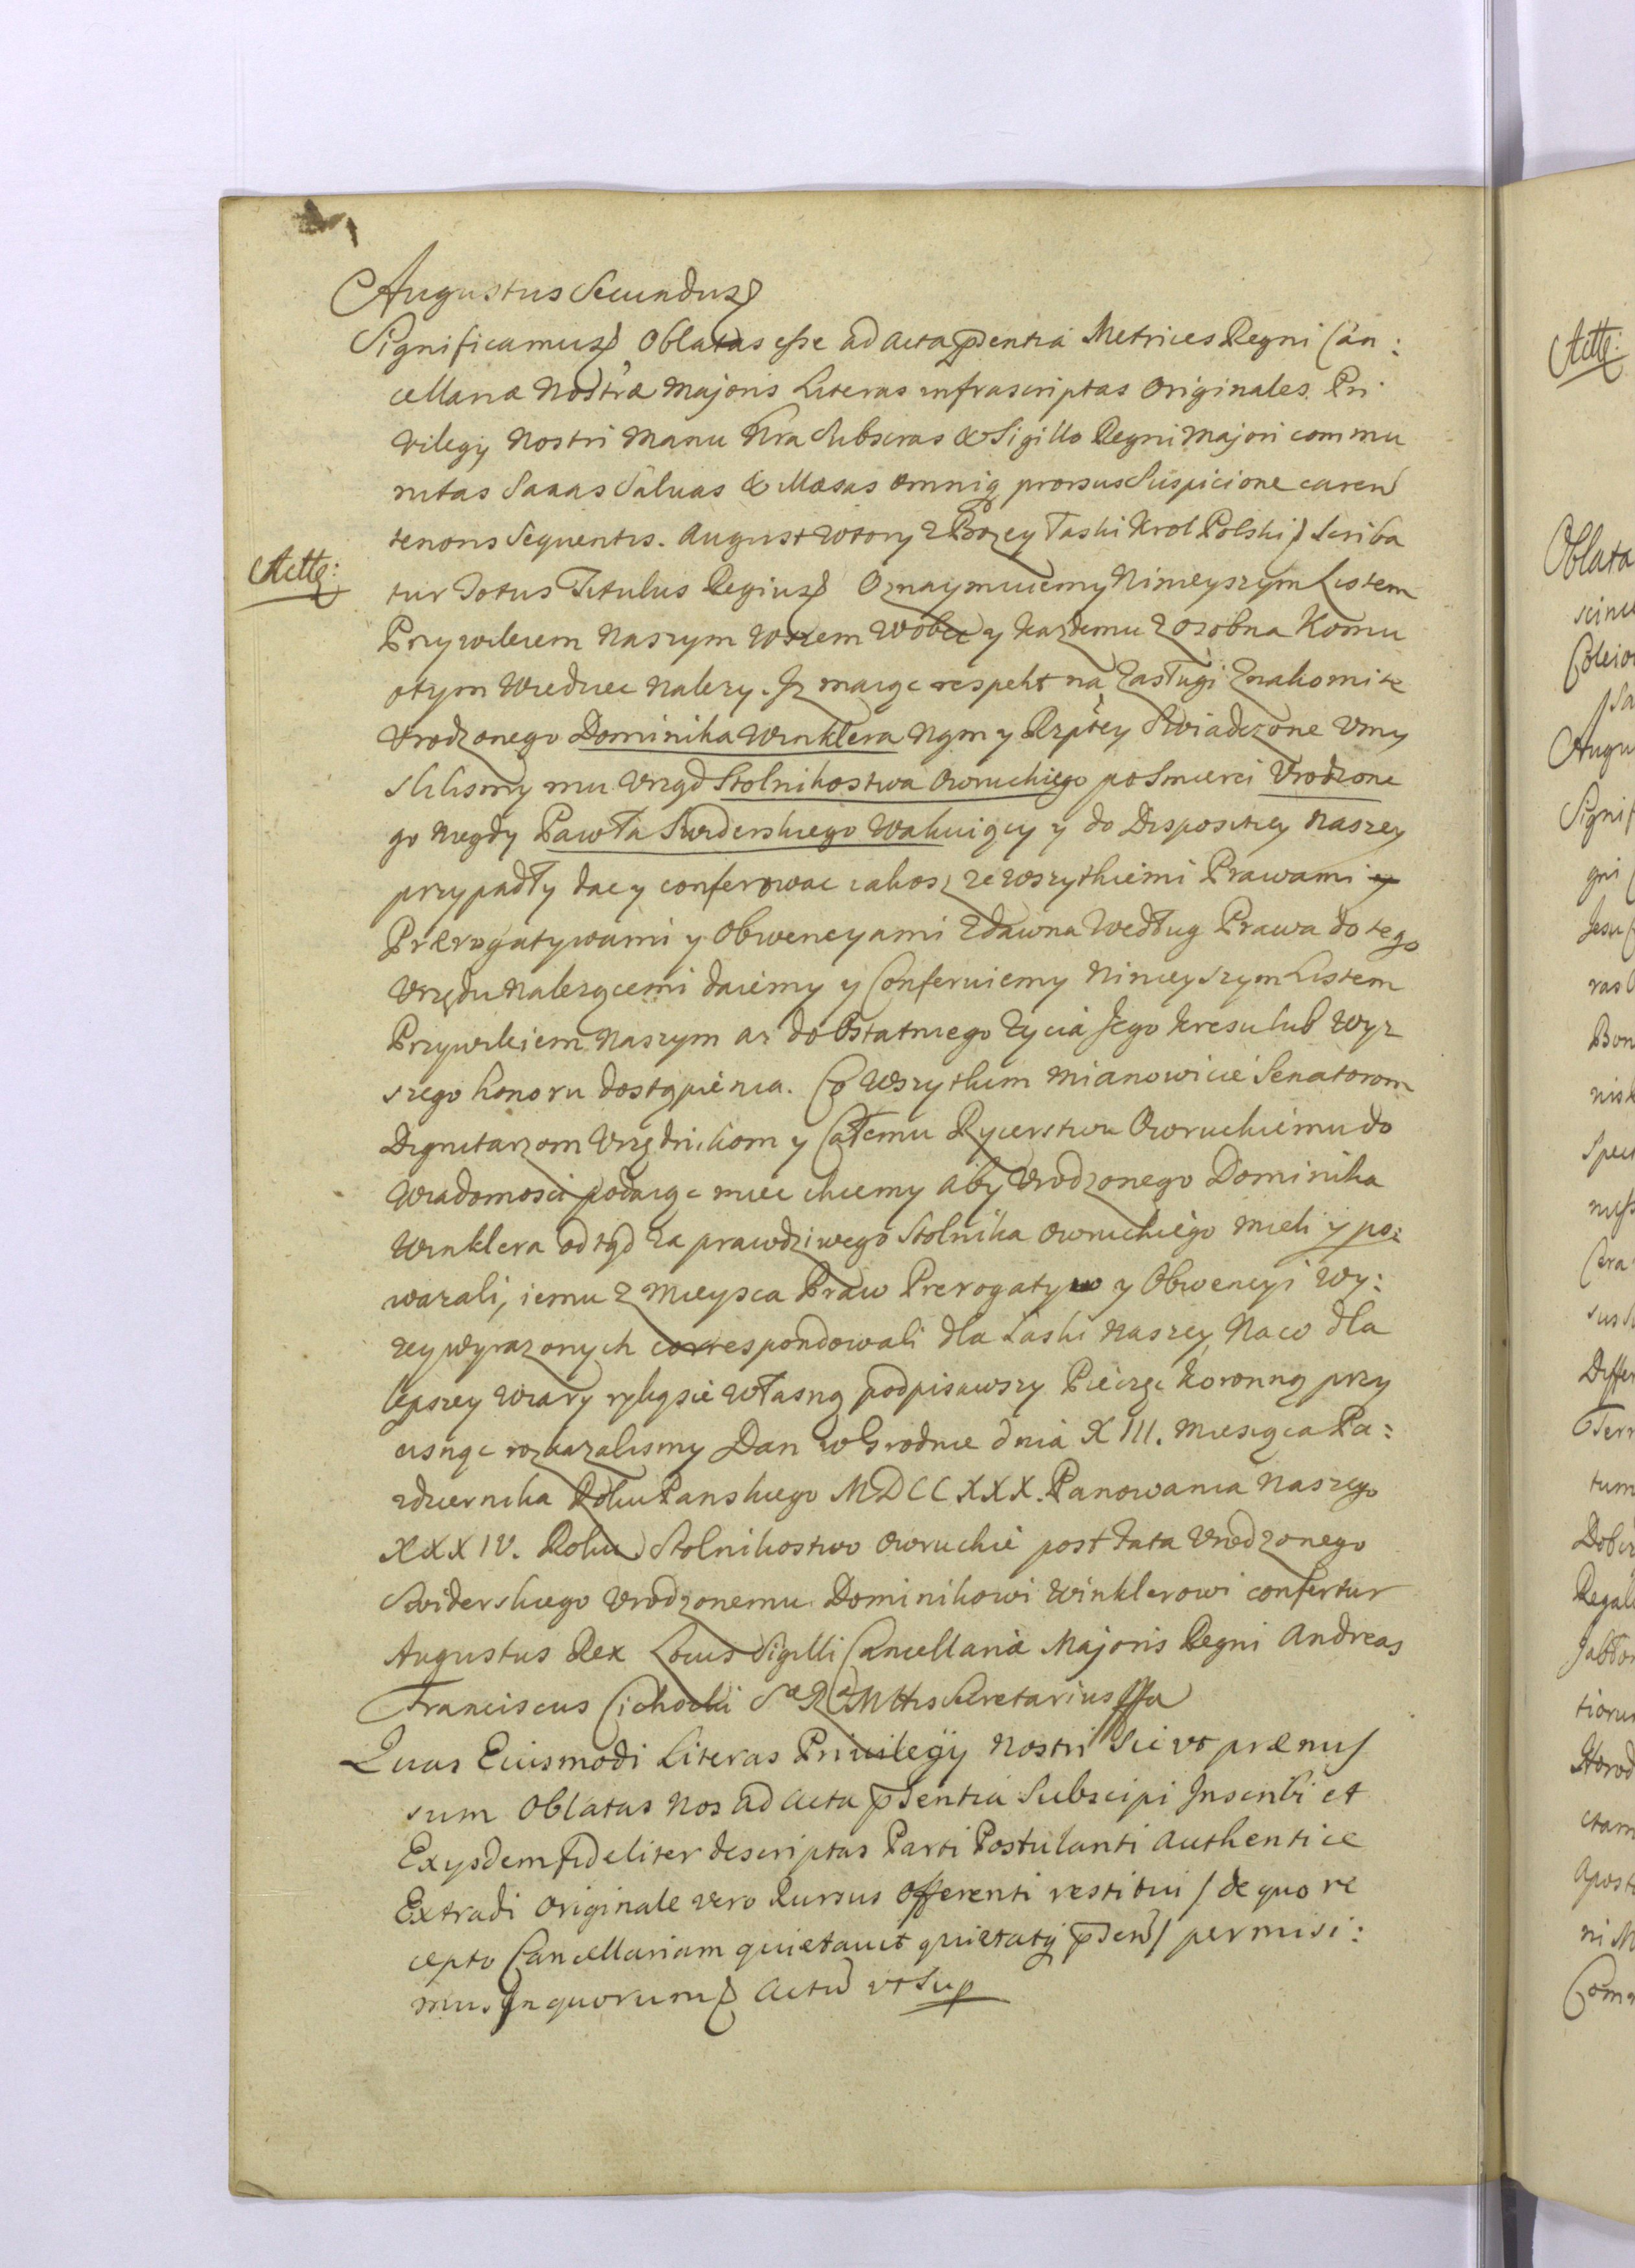 Augustus Secundus
Significamus Oblatas esse ad acta pṡentia Metrices Regni Can:
cellariæ Nostræ Majoris Literas infrascriptas Originales Pri
vilegÿ Nostri Manu Nra Subscras & Sigillo Regni Majori commu
nitas Sanas Salvas & Illæsas omniq prorsus Suspicione caren
tenoris Sequentis. August Wtory z Bozey Łaski Krol Polski Scriba
Actte:
tur Totus Titulus Regius Oznaymuiemy Ninieyszym Listem
Przywileiem Naszym Wszem Wobec y kazdemu zosobna Komu
otym Wiedziec nalezy. Iz maiąc respekt na Zasługi Znakomite
Urodzonego Dominika Winklera Nam y Rzptey Swiadczone Umy
slilismy mu Urząd Stolnikostwa Owruckiego po Smierci Urodzone
go Niegdy Pawła Swiderskiego Wakuiący y do Dispozycyey Naszey
przypadły dac y conferowac iakosz ze wszytkiemi Prawami y
Prærogatywami y Obwencyami Zdawna Według Prawa do tego
Urzędu Nalezącemi daiemy y Conferuiemy Ninieyszym Listem
Przywileiem Naszym az do Ostatniego Zycia Jego kresu lub Wyz
szego honoru dostąpienia. Co Wszytkim mianowicie Senatorom
Dignitarzom Urzędnikom y Całemu Rycerstwu Owruckiemu do
Wiadomosci podaiąc miec chcemy aby Urodzonego Dominika
Winklera odtąd za prawdziwego Stolnika Owruckiego mieli y po:
wazali, iemu z Mieysca Praw Prerogatyw y Obwencyi Wy:
zey wyrazonych correspondowali dla Łaski Naszey Na co dla
lepszey Wiary ręką sie Własną podpisawszy Pieczęc koronną przy
cisnąc rozkazalismy Dan w Grodnie dnia XIII. Miesiąca Pa:
zdziernika Roku Panskiego MDCCXXX. Panowania Naszego
XXXIV. Roku Stolnikostwo Owruckie post fata Urodzonego
Swiderskiego Urodzonemu Dominikowi Winklerowi confertur
Augustus Rex Locus Sigilli Cancellariæ Majoris Regni Andreas
Franciscus Cichocki Sæ Ræ Mttis Secretarius
Quas Eiusmodi Literas Privilegÿ Nostri Sic vt præmis
sum Oblatas Nos ad acta pṡentia Subscipi Inscribi et
Exysdem fideliter descriptas Parti Postulanti Authentice
Extradi Originale vero Rursus Offerenti restitui / de quo re
cepto Cancellariam quietavit quietatq pṡen / permisi:
mus In quorum Actu vt Sup